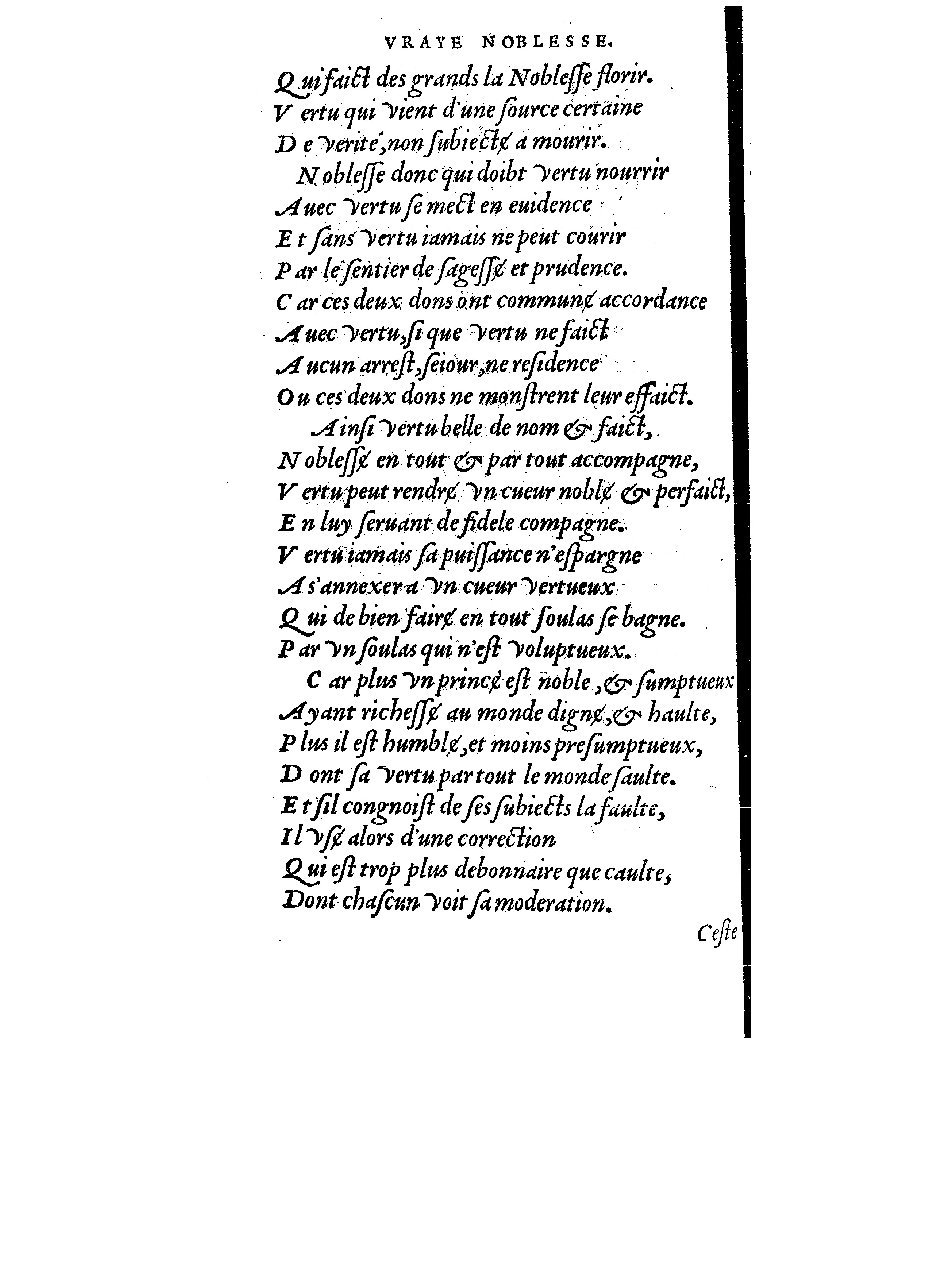 VRAYE NOBLESSE.
Qui faict des grands la Noblesse florir.
Vertu qui vient d'une source certaine
De verité, non subiectɇ a mourir.
Noblesse donc qui doibt vertu nourrir
Auec vertu se mect en euidence
Et sans vertu iamais ne peut courir
Par le sentier de sagessɇ et prudence.
Car ces deux dons ont communɇ accordance
Auec vertu, si que vertu ne faict
Aucun arrest, seiour, ne residence
Ou ces deux dons ne monstrent leur effaict.
Ainsi vertu belle de nom & faict,
Noblessɇ en tout & par tout accompagne,
Vertu peut rendrɇ vn cueur noblɇ & perfaict,
En luy seruant de fidele compagne.
Vertu iamais sa puissance n'espargne
A s'annexer a vn cueur vertueux
Qui de bien fairɇ en tout soulas se bagne.
Par vn soulas qui n'est voluptueux.
Car plus vn princɇ est noble, & sumptueux
Ayant richessɇ au monde dignɇ, & haulte,
Plus il est humblɇ, et moins presumptueux,
Dont sa vertu par tout le monde saulte.
Et sil congnoist de ses subiects la faulte,
Il vsɇ alors d'une correction
Qui est trop plus debonnaire que caulte,
Dont chascun voit sa moderation.
Ceste